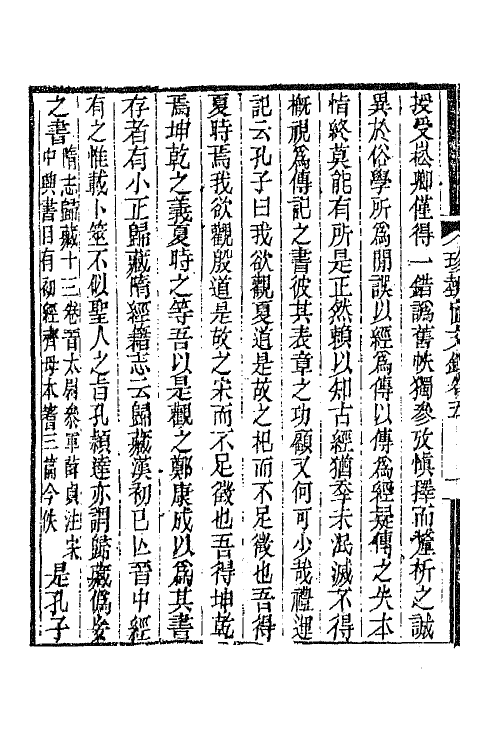 授受崧卿僅得一錯譌舊帙獨參攷慎擇而釐析之誠
異於俗學所爲開誤以經爲傳以傳爲經疑傳之失本
情終莫能有所是正然賴以知古經猶奉未泯滅不得
概視爲傳記之書彼其表章之功顧又何可少哉禮運
記云孔子曰我欲觀夏道是故之杞而不足徵也吾得
夏時焉我欲觀殷道是故之宋而不足徵也吾得坤乾
焉坤乾之義夏時之等吾以是觀之鄭康成以爲其書
存者有小正歸藏隋經籍志云歸藏漢初已亾晉中經
有之惟載卜筮不似聖人之旨孔穎達亦謂歸藏僞妄
之書隋志歸藏十三卷晉太尉參軍薛貞注宋
中興書目有初經齊母本蓍三篇今佚 是孔子